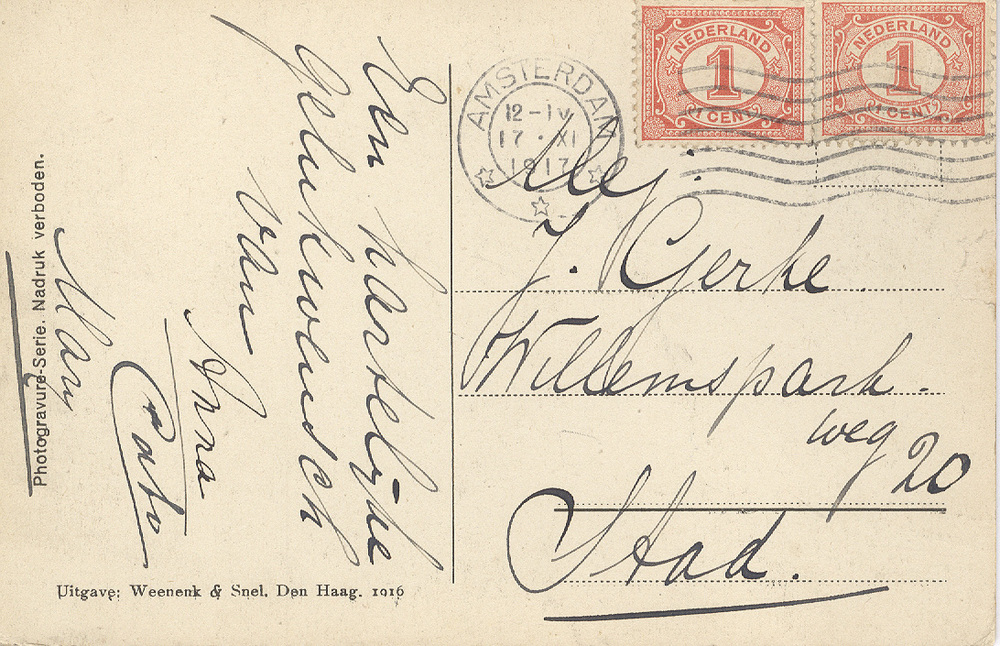 Een hartelijke
Gelukwensch
van
Anna
Cato
Photogravure-Serie. Nadruk verboden.
Uitgave: Weenenk & Snel, Den Haag. 1916
AMSTERDAM
12-IV
17·XI
1917
NEDERLAND
1
1 CENT
NEDERLAND
1
1 CENT
Mej.
J. Gerke
Willemspark-
weg 20
Stad.